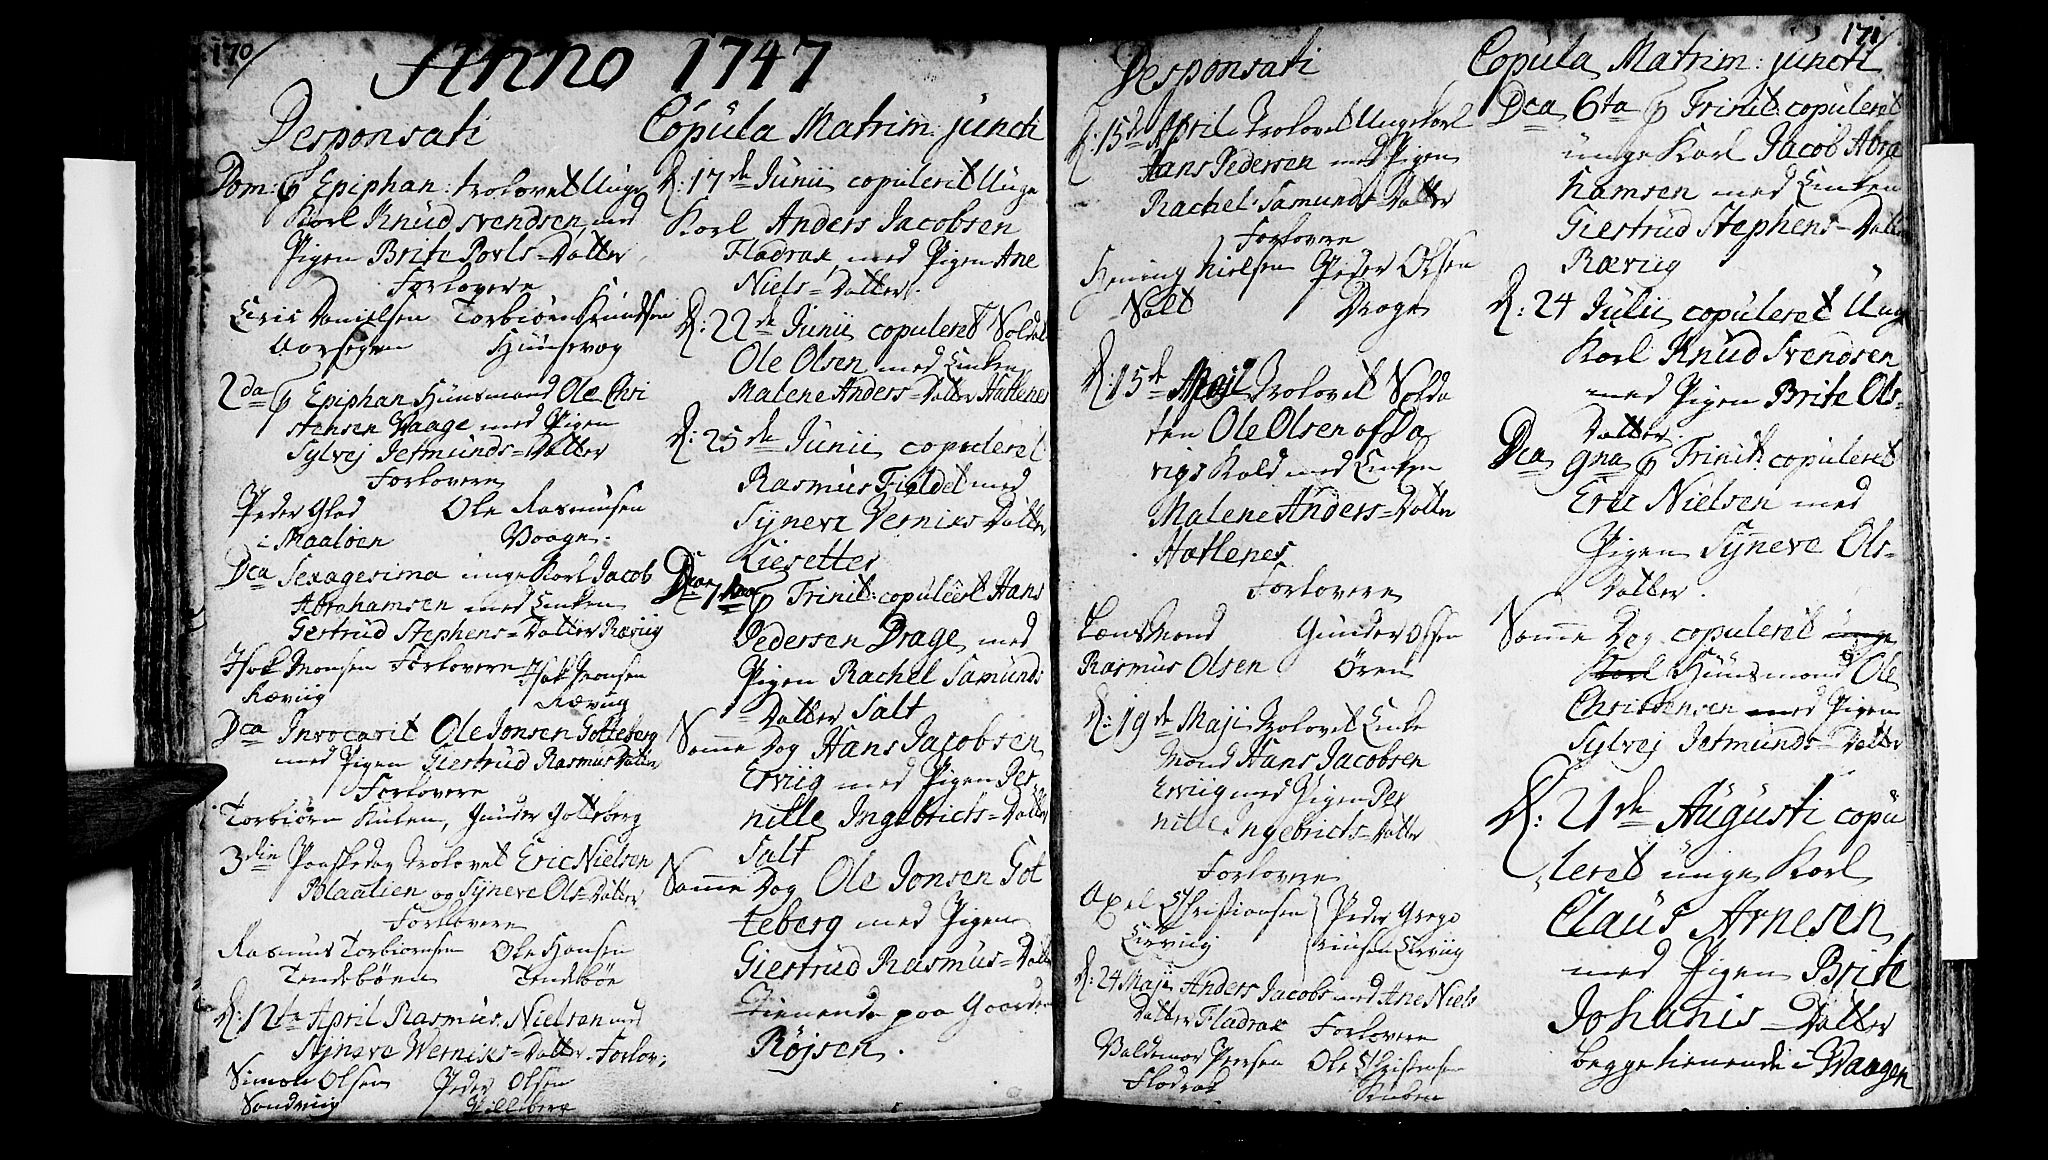 170
Anno 1747
Desponsati
Dom: 6 Epiphan: trolovet Unge
Karl Knud Svendsen med
Pigen Brite Povls=Datter
Forlovere
Eric Danielsen Torbiørn Knudsen
Hunsevog
2da 6 Epiphan Huusmand Ole Chri
stensen Vaage med Pigen
Sylvej Jetmunds=Datter
Forlovere
Peder Glad Ole Rasmusen
i Maaløen Vaage.
Dca Sexagesima unge Karl Jacob
Abrahamsen med Enken
Giertrud Stephens=Datter Rævug
Isak Monsen Forlovere Isak Monsen
Rævug Rævug
Dca Invocavit Ole Jonsen Gotteberg
med Pigen Giertrud Rasmus Datter
Forlovere
Torbiørn Gunder Gotteberg
3die Paaskedag trolovet Eric Nielsen
Blaalien og Syneve Ols=Datter
Forlovere
Rasmus Torbiørnsen Ole Hansen
Tendebøen Tendebøe
D: 12te April Rasmus Nielsen med
Syneve Werniks=Datter. Forlov:
Simon Olsen Peder Olsen
Sandviig Hilleberg
Copula Matrim: juncti
D: 17de Junii copuleret Unge
Karl Anders Jacobsen
Fladrak med Pigen Ane
Niels=Datter.
D: 22de Junii copuleret Soldat
Ole Olsen med Enken
Malene Anders=Datter Hatlenes
D: 25de Junii copuleret
Rasmus Fieldet med
Syneve Verniks Datter
Liesetter
Dca 7 6 Trinit: copuleret Hans
Pedersen Drage med
Pigen Rachel Samunds
=Datter Salt
Samme Dag Hans Jacobsen
Erviig med Pigen Per
nille Ingebricts=Datter
Salt
Samme Dag Ole Jonsen Got
teberg med Pigen
Giertrud Rasmus=Datter
tienende paa Gaarden
Røjsen.
171
Desponsati
D: 15de April trolovet Ungekarl
Hans Pedersen med Pigen
Rachel Samunds=Datter
Forlovere
Hening Nielsen Peder Olsen
Salt Drage
D: 15de Maji trolovet Solda
ten Ole Olsen of Da
vigs Kald med Enken
Malene Anders=Datter
Hatlenes
Forlovere
Lensmand Gunder Olsen
Rasmus Olsen Ören
D: 19de Maji trolovet Enke
Mand Hans Jacobsen
Erviig med Pigen Per
nille Ingebricts=Datter
Forlovere
Axel Christiansen Peder Grego
Erviig riusen Erviig
D: 24 Maji Anders Jacobs med Ane Niels
Datter Fladrak Forlovere
Valdemar Peersen Ole Christensen
Fladrak
Copula Matrim: juncti
Dca 6ta 6 Trinit: copuleret
unge Karl Jacob Abra
hamsen med Enken
Giertrud Stephens=Datter
Rævug
D: 24 Julii copuleret Ung
Karl Knud Svendsen
med Pigen Brite Ols=
Datter
Dca 9na 6 Trinit: copuleret
Eric Nielsen med
Pigen Syneve Ols=
Datter.
Samme Dag copuleret unge
Karl Huusmand Ole
Christensen med Pigen
Sylvej Jetmunds=Datter
D: 21de Augusti copu
leret unge Karl
Claus Arnesen
med Pigen Brite
Johanis=Datter
begge tienende i Vaagen